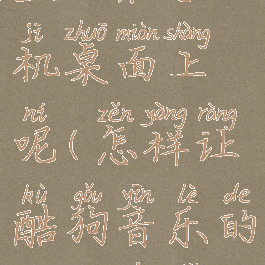 jī zhuō miàn shàng
机桌面上
ní zěn yàng ràng
呢(怎样让
kù gǒu yīn lè de
酷狗音乐的